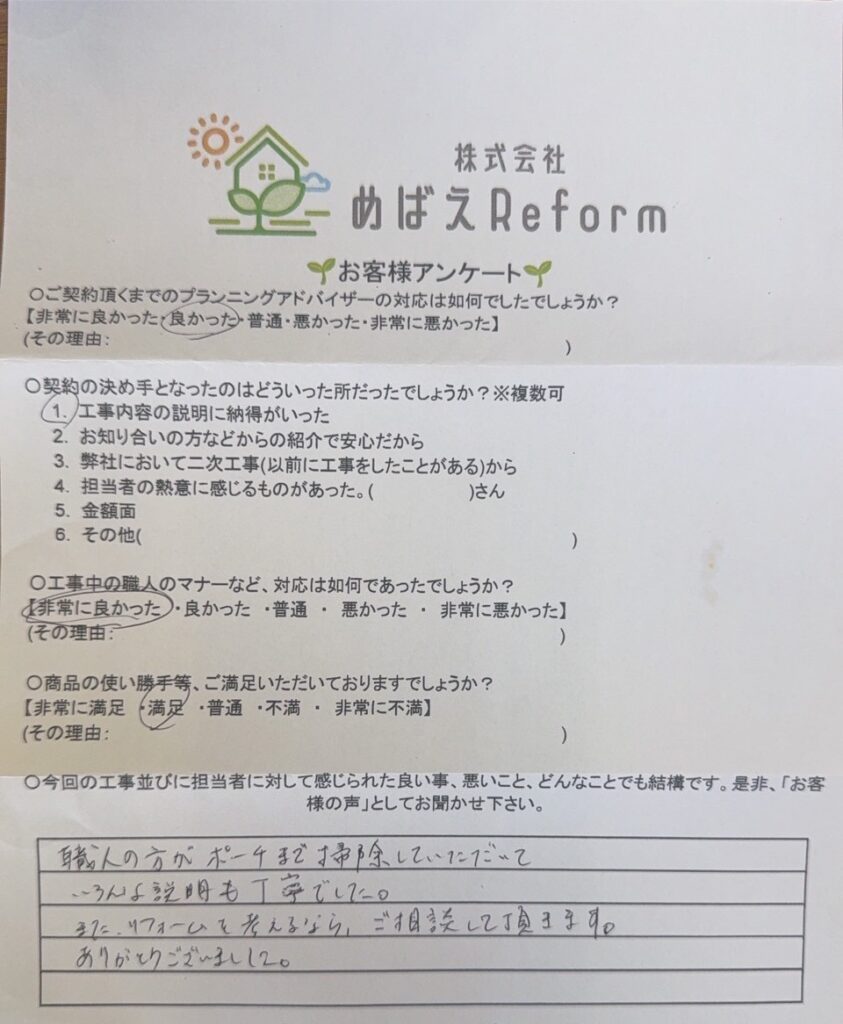 株式会社
めばえReform
お客様アンケート
○ご契約頂くまでのプランニングアドバイザーの対応は如何でしたでしょうか？
【非常に良かった・良かった・普通・悪かった・非常に悪かった】
(その理由： )
○契約の決め手となったのはどういった所だったでしょうか？※複数可
1. 工事内容の説明に納得がいった
2. お知り合いの方などからの紹介で安心だから
3. 弊社において二次工事(以前に工事をしたことがある)から
4. 担当者の熱意に感じるものがあった。( )さん
5. 金額面
6. その他( )
○工事中の職人のマナーなど、対応は如何であったでしょうか？
【非常に良かった ・良かった ・普通 ・ 悪かった ・ 非常に悪かった】
(その理由： )
○商品の使い勝手等、ご満足いただいておりますでしょうか？
【非常に満足 ・満足 ・普通 ・不満 ・ 非常に不満】
(その理由： )
○今回の工事並びに担当者に対して感じられた良い事、悪いこと、どんなことでも結構です。是非、「お客
様の声」としてお聞かせ下さい。
職人の方がポーチまで掃除していただいて
いろんな説明も丁寧でした。
また、リフォームを考えるなら、ご相談して頂きます。
ありがとうございました。